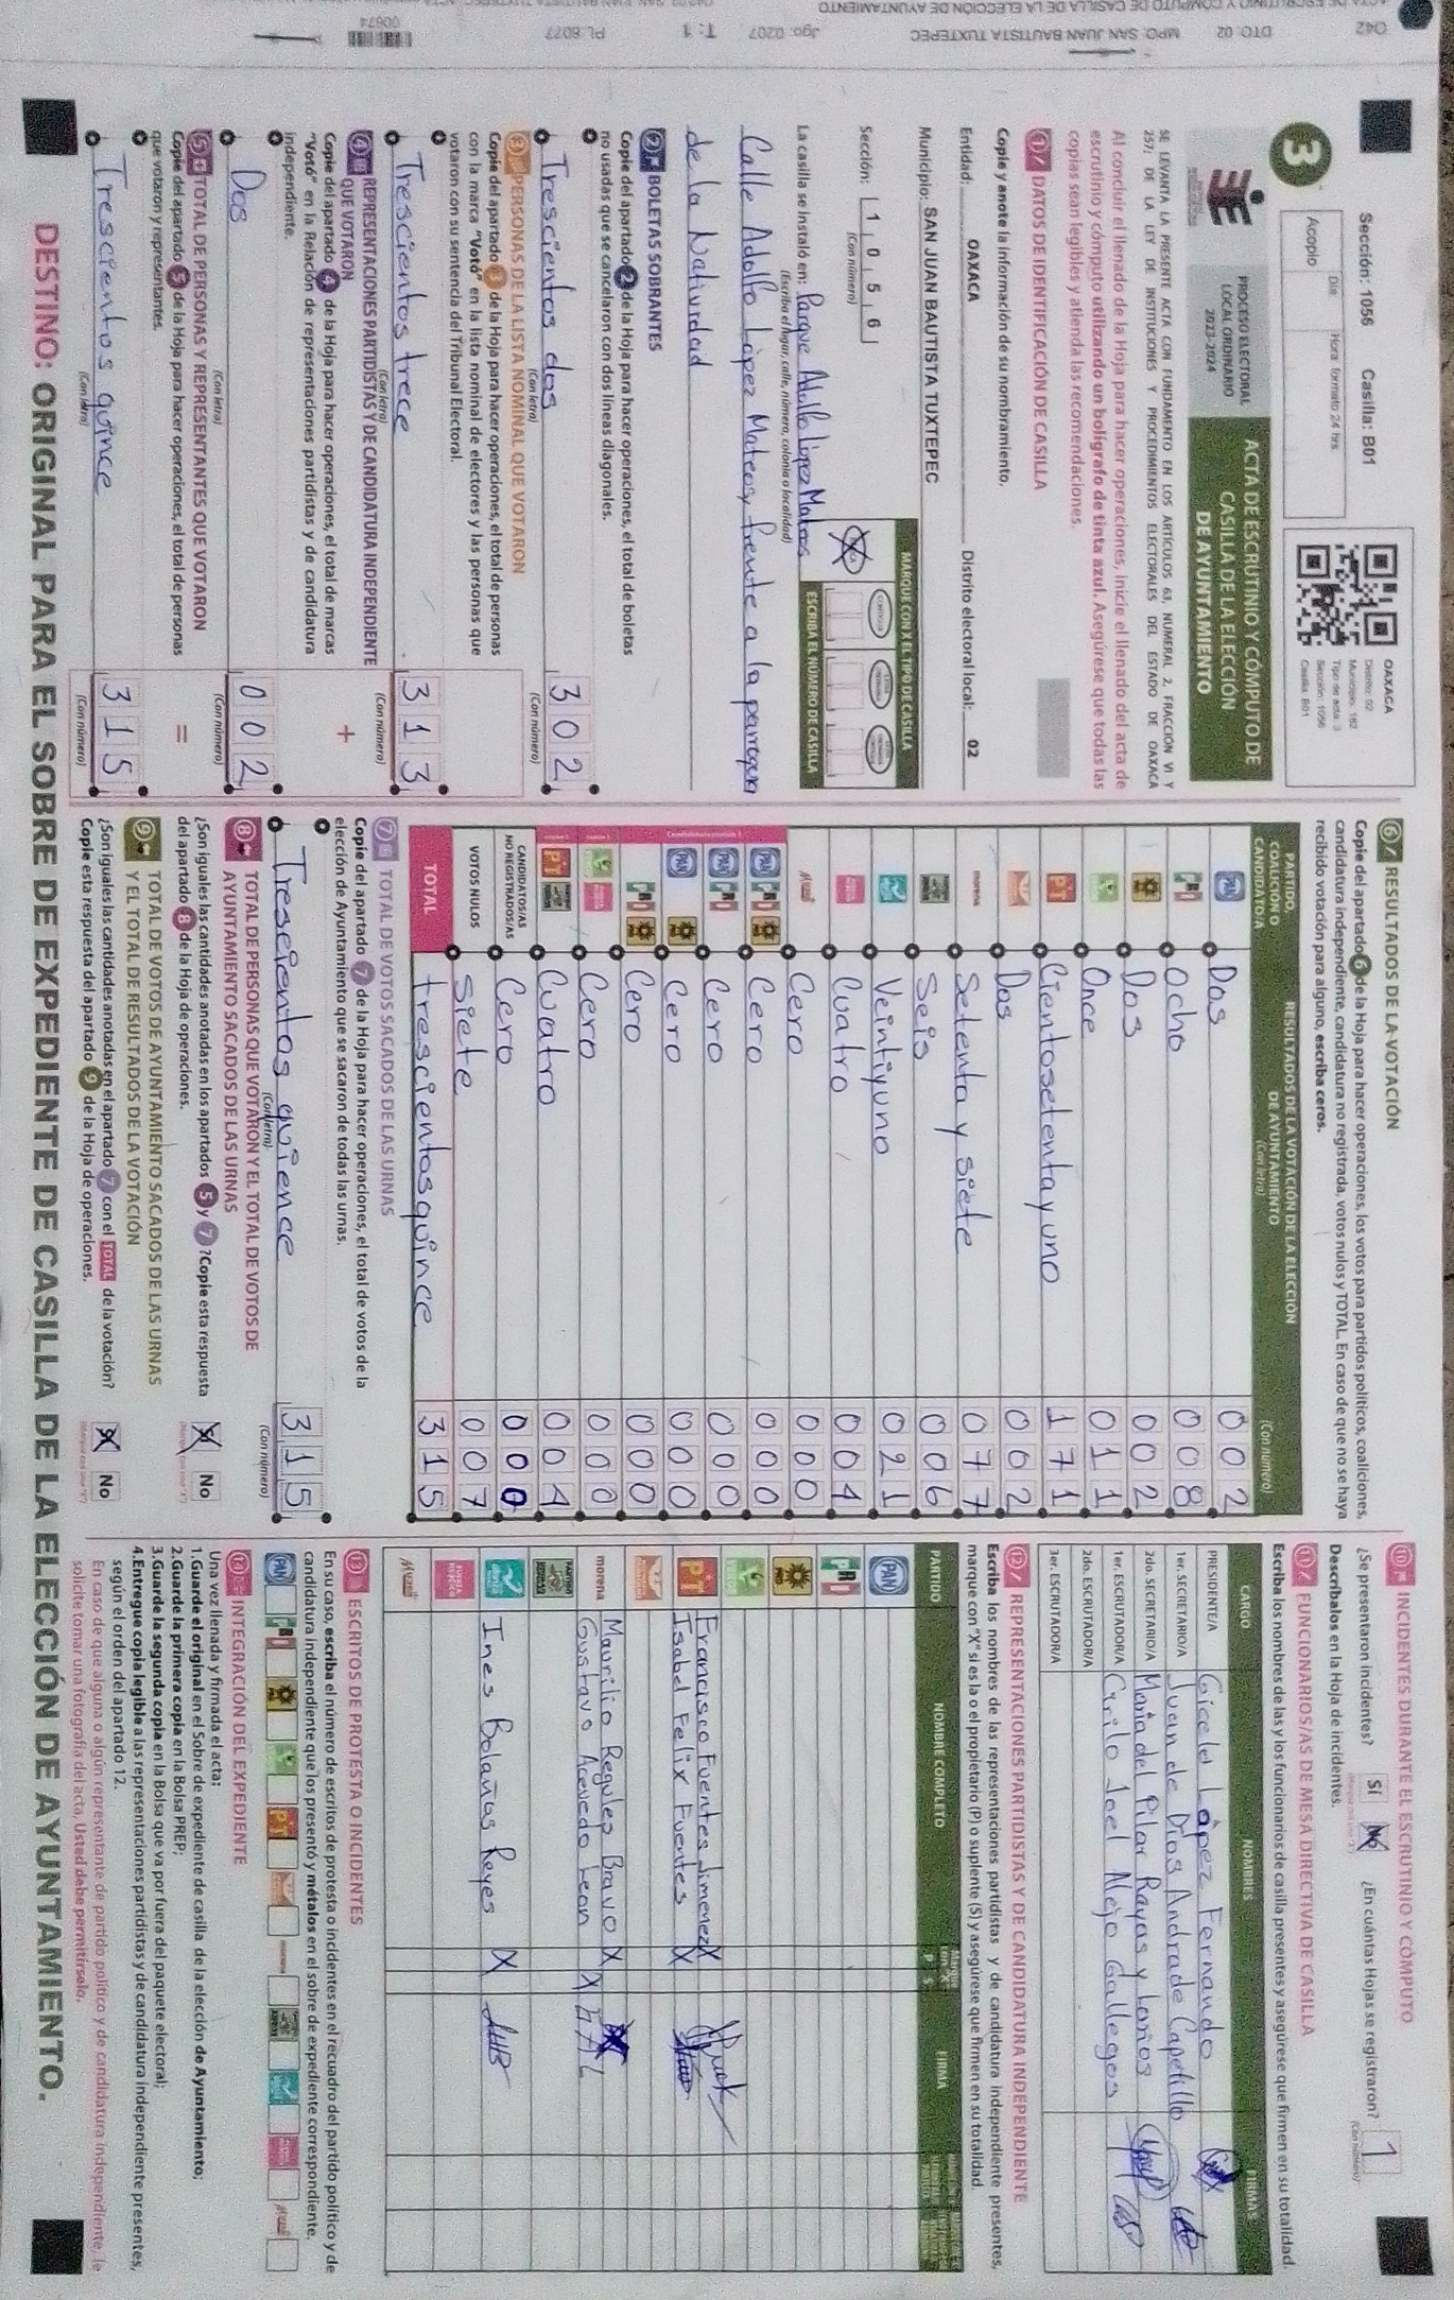 Sección: 1056 Casilla: B01
Día Hora formato 24 hrs
Acopio
3
OAXACA
Distrito: 02
Municipio: 182
Tipo de acta: 3
Sección: 1056
Casilla: B01
PROCESO ELECTORAL
LOCAL ORDINARIO
2023-2024
ACTA DE ESCRUTINIO Y CÓMPUTO DE
CASILLA DE LA ELECCIÓN
DE AYUNTAMIENTO
SE LEVANTA LA PRESENTE ACTA CON FUNDAMENTO EN LOS ARTÍCULOS 63, NUMERAL 2, FRACCIÓN VI Y
257; DE LA LEY DE INSTITUCIONES Y PROCEDIMIENTOS ELECTORALES DEL ESTADO DE OAXACA
Al concluir el llenado de la Hoja para hacer operaciones, inicie el llenado del acta de
escrutinio y cómputo utilizando un bolígrafo de tinta azul. Asegúrese que todas las
copias sean legibles y atienda las recomendaciones.
1 DATOS DE IDENTIFICACIÓN DE CASILLA
Copie y anote la información de su nombramiento.
Entidad: OAXACA Distrito electoral local: 02
Municipio: SAN JUAN BAUTISTA TUXTEPEC
MARQUE CON X EL TIPO DE CASILLA
Sección: 1 0 5 6
(Con número)
ESCRIBA EL NÚMERO DE CASILLA
La casilla se instaló en: Parque Adolfo López Mateos
(Escriba el lugar, calle, número, colonia o localidad)
Calle Adolfo López Mateos, frente a la parroquia
de la Natividad
2 BOLETAS SOBRANTES
Copie del apartado 2 de la Hoja para hacer operaciones, el total de boletas
no usadas que se cancelaron con dos líneas diagonales.
Trescientos dos 302
(Con letra) (Con número)
3 PERSONAS DE LA LISTA NOMINAL QUE VOTARON
Copie del apartado 3 de la Hoja para hacer operaciones, el total de personas
con la marca "Votó" en la lista nominal de electores y las personas que
votaron con su sentencia del Tribunal Electoral.
Trescientos trece 313
(Con letra) (Con número)
4 REPRESENTACIONES PARTIDISTAS Y DE CANDIDATURA INDEPENDIENTE
QUE VOTARON
+
Copie del apartado 4 de la Hoja para hacer operaciones, el total de marcas
"Votó" en la Relación de representaciones partidistas y de candidatura
independiente.
Dos 002
(Con letra) (Con número)
5 TOTAL DE PERSONAS Y REPRESENTANTES QUE VOTARON
=
Copie del apartado 5 de la Hoja para hacer operaciones, el total de personas
que votaron y representantes.
Trescientos quince 315
(Con letra) (Con número)
6 RESULTADOS DE LA VOTACIÓN
Copie del apartado 6 de la Hoja para hacer operaciones, los votos para partidos políticos, coaliciones,
candidatura independiente, candidatura no registrada, votos nulos y TOTAL. En caso de que no se haya
recibido votación para alguno, escriba ceros.
PARTIDO, COALICIÓN O CANDIDATO/A
RESULTADOS DE LA VOTACIÓN DE LA ELECCIÓN
DE AYUNTAMIENTO
(Con letra) (Con número)
PAN Dos 002
PRI Ocho 008
PRD Dos 002
Once 011
PT Cientosetenta y uno 171
Dos 002
morena Setenta y siete 077
Seis 006
Veintiyuno 021
Cuatro 004
Cero 000
PAN PRI PRD Cero 000
PAN PRI Cero 000
PAN PRD Cero 000
PRI PRD Cero 000
Cero 000
PT Cuatro 004
CANDIDATOS/AS NO REGISTRADOS/AS Cero 000
VOTOS NULOS Siete 007
TOTAL trescientos quince 315
7 TOTAL DE VOTOS SACADOS DE LAS URNAS
Copie del apartado 7 de la Hoja para hacer operaciones, el total de votos de la
elección de Ayuntamiento que se sacaron de todas las urnas.
Trescientos quience 315
(Con letra) (Con número)
8 TOTAL DE PERSONAS QUE VOTARON Y EL TOTAL DE VOTOS DE
AYUNTAMIENTO SACADOS DE LAS URNAS
¿Son iguales las cantidades anotadas en los apartados 5 y 7? Copie esta respuesta
del apartado 8 de la Hoja de operaciones.
Sí No
9 TOTAL DE VOTOS DE AYUNTAMIENTO SACADOS DE LAS URNAS
Y EL TOTAL DE RESULTADOS DE LA VOTACIÓN
¿Son iguales las cantidades anotadas en el apartado 7 con el TOTAL de la votación?
Copie esta respuesta del apartado 9 de la Hoja de operaciones.
Sí No
10 INCIDENTES DURANTE EL ESCRUTINIO Y CÓMPUTO
¿Se presentaron incidentes? Sí No ¿En cuántas Hojas se registraron? 1
(Con número)
Descríbalos en la Hoja de incidentes.
11 FUNCIONARIOS/AS DE MESA DIRECTIVA DE CASILLA
Escriba los nombres de las y los funcionarios de casilla presentes y asegúrese que firmen en su totalidad.
CARGO NOMBRES FIRMAS
PRESIDENTE/A Gicela López Fernando
1er. SECRETARIO/A Juan de Dios Andrade Capetillo
2do. SECRETARIO/A María del Pilar Rayas y Larios
1er. ESCRUTADOR/A Cirilo Joel Alejo Gallegos
2do. ESCRUTADOR/A
3er. ESCRUTADOR/A
12 REPRESENTACIONES PARTIDISTAS Y DE CANDIDATURA INDEPENDIENTE
Escriba los nombres de las representaciones partidistas y de candidatura independiente presentes,
marque con "X" si es la o el propietario (P) o suplente (S) y asegúrese que firmen en su totalidad.
PARTIDO NOMBRE COMPLETO P S FIRMA
PAN
PRI
PRD
PT Francisco Fuentes Jimenez X
Isabel Felix Fuentes X
morena Maurilio Regules Bravo X
Gustavo Acevedo Leon X GAL
Ines Bolaños Reyes X
13 ESCRITOS DE PROTESTA O INCIDENTES
En su caso, escriba el número de escritos de protesta o incidentes en el recuadro del partido político y de
candidatura independiente que los presentó y métalos en el sobre de expediente correspondiente.
14 INTEGRACIÓN DEL EXPEDIENTE
Una vez llenada y firmada el acta:
1.Guarde el original en el Sobre de expediente de casilla de la elección de Ayuntamiento;
2.Guarde la primera copia en la Bolsa PREP;
3.Guarde la segunda copia en la Bolsa que va por fuera del paquete electoral;
4.Entregue copia legible a las representaciones partidistas y de candidatura independiente presentes,
según el orden del apartado 12.
En caso de que alguna o algún representante de partido político y de candidatura independiente, le
solicite tomar una fotografía del acta, Usted debe permitírselo.
DESTINO: ORIGINAL PARA EL SOBRE DE EXPEDIENTE DE CASILLA DE LA ELECCIÓN DE AYUNTAMIENTO.
042 DTO: 02 MPO: SAN JUAN BAUTISTA TUXTEPEC Jgo: 0207 T: 1 PL: 6077
00674
ACTA DE ESCRUTINIO Y CÓMPUTO DE CASILLA DE LA ELECCIÓN DE AYUNTAMIENTO